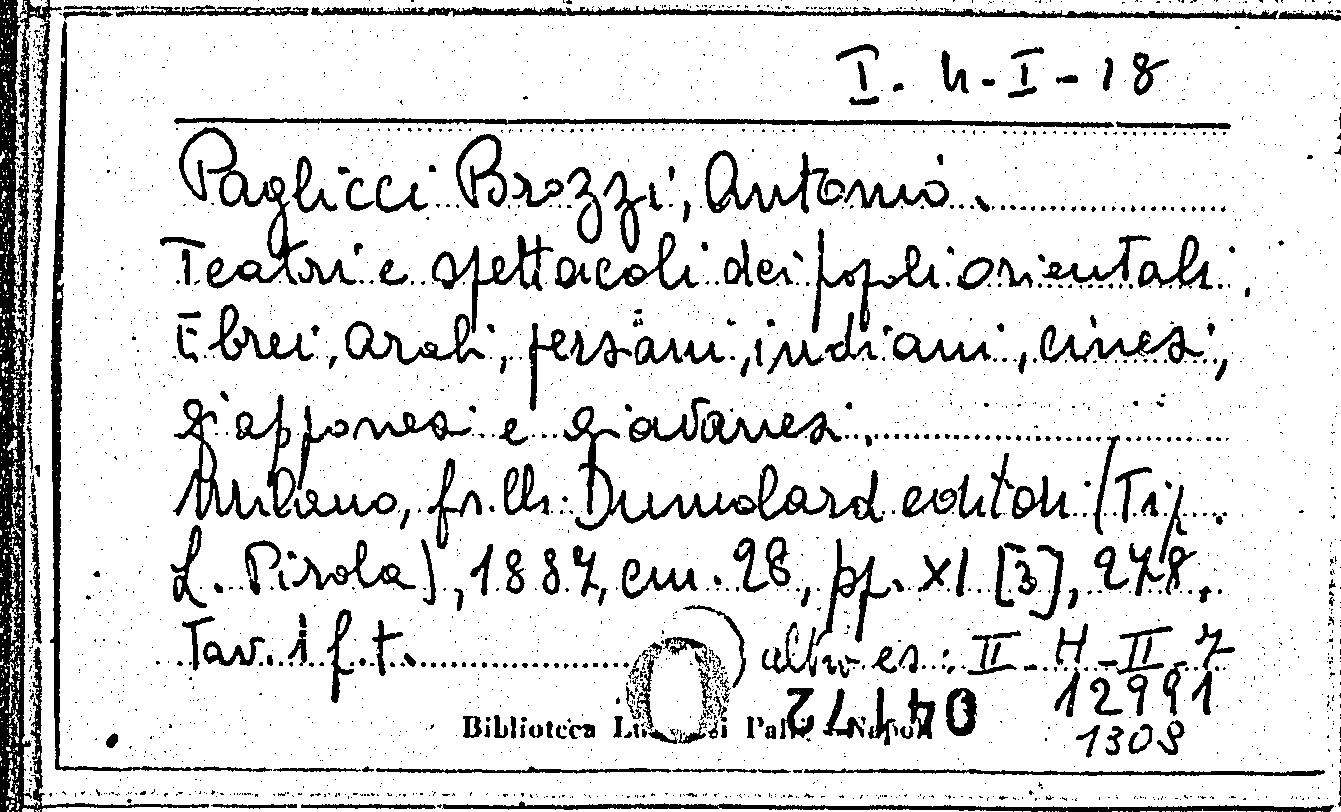 I. H-I-18
Paglicci Brozzi, Antonio.
Teatri e spettacoli dei popoli orientali.
Ebrei, arabi, persiani, indiani, cinesi,
giapponesi e giavanesi.
Milano, f.lli Dumolard editori (Tip.
L. Pirola), 1887, cm. 28, pp. XI [3], 278,
Tav. 1 f. t.
altro es: II-H-II-7
12991
1308
Biblioteca Napoli